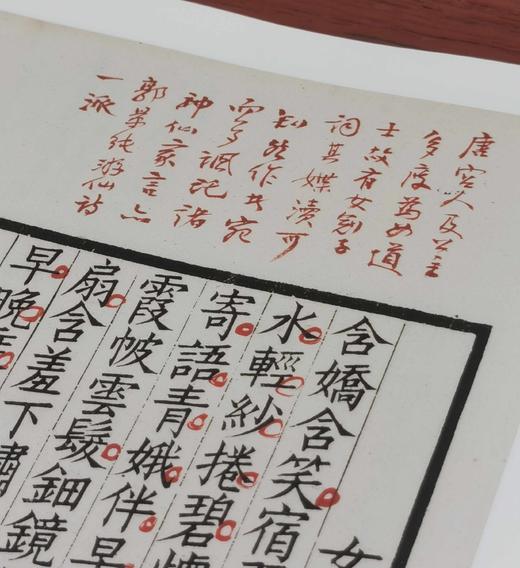 唐宮人及公主
多度為女道
士故有女冠子
詞其媟瀆可
知然作者宛
而多諷託諸
神仙家言亦
郭景純游仙詩
一派
女
含嬌含笑宿
水輕紗捲碧
寄語青娥伴早
霞帔雲鬢鈿鏡
扇含羞下繡
早晚